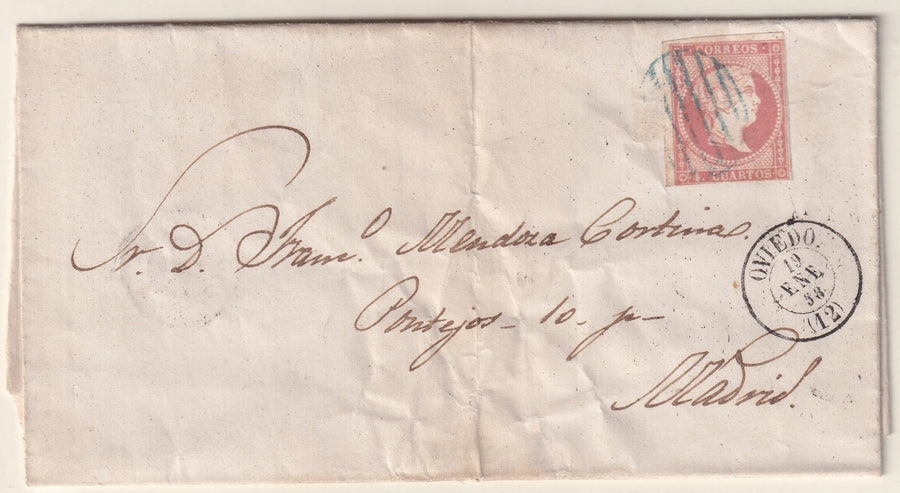 CORREOS
4. CUARTOS
Sr. D. Franco. Mendoza Cortinas.
Pontejos - 10. p-
Madrid.
OVIEDO.
19
ENE
58
(12)